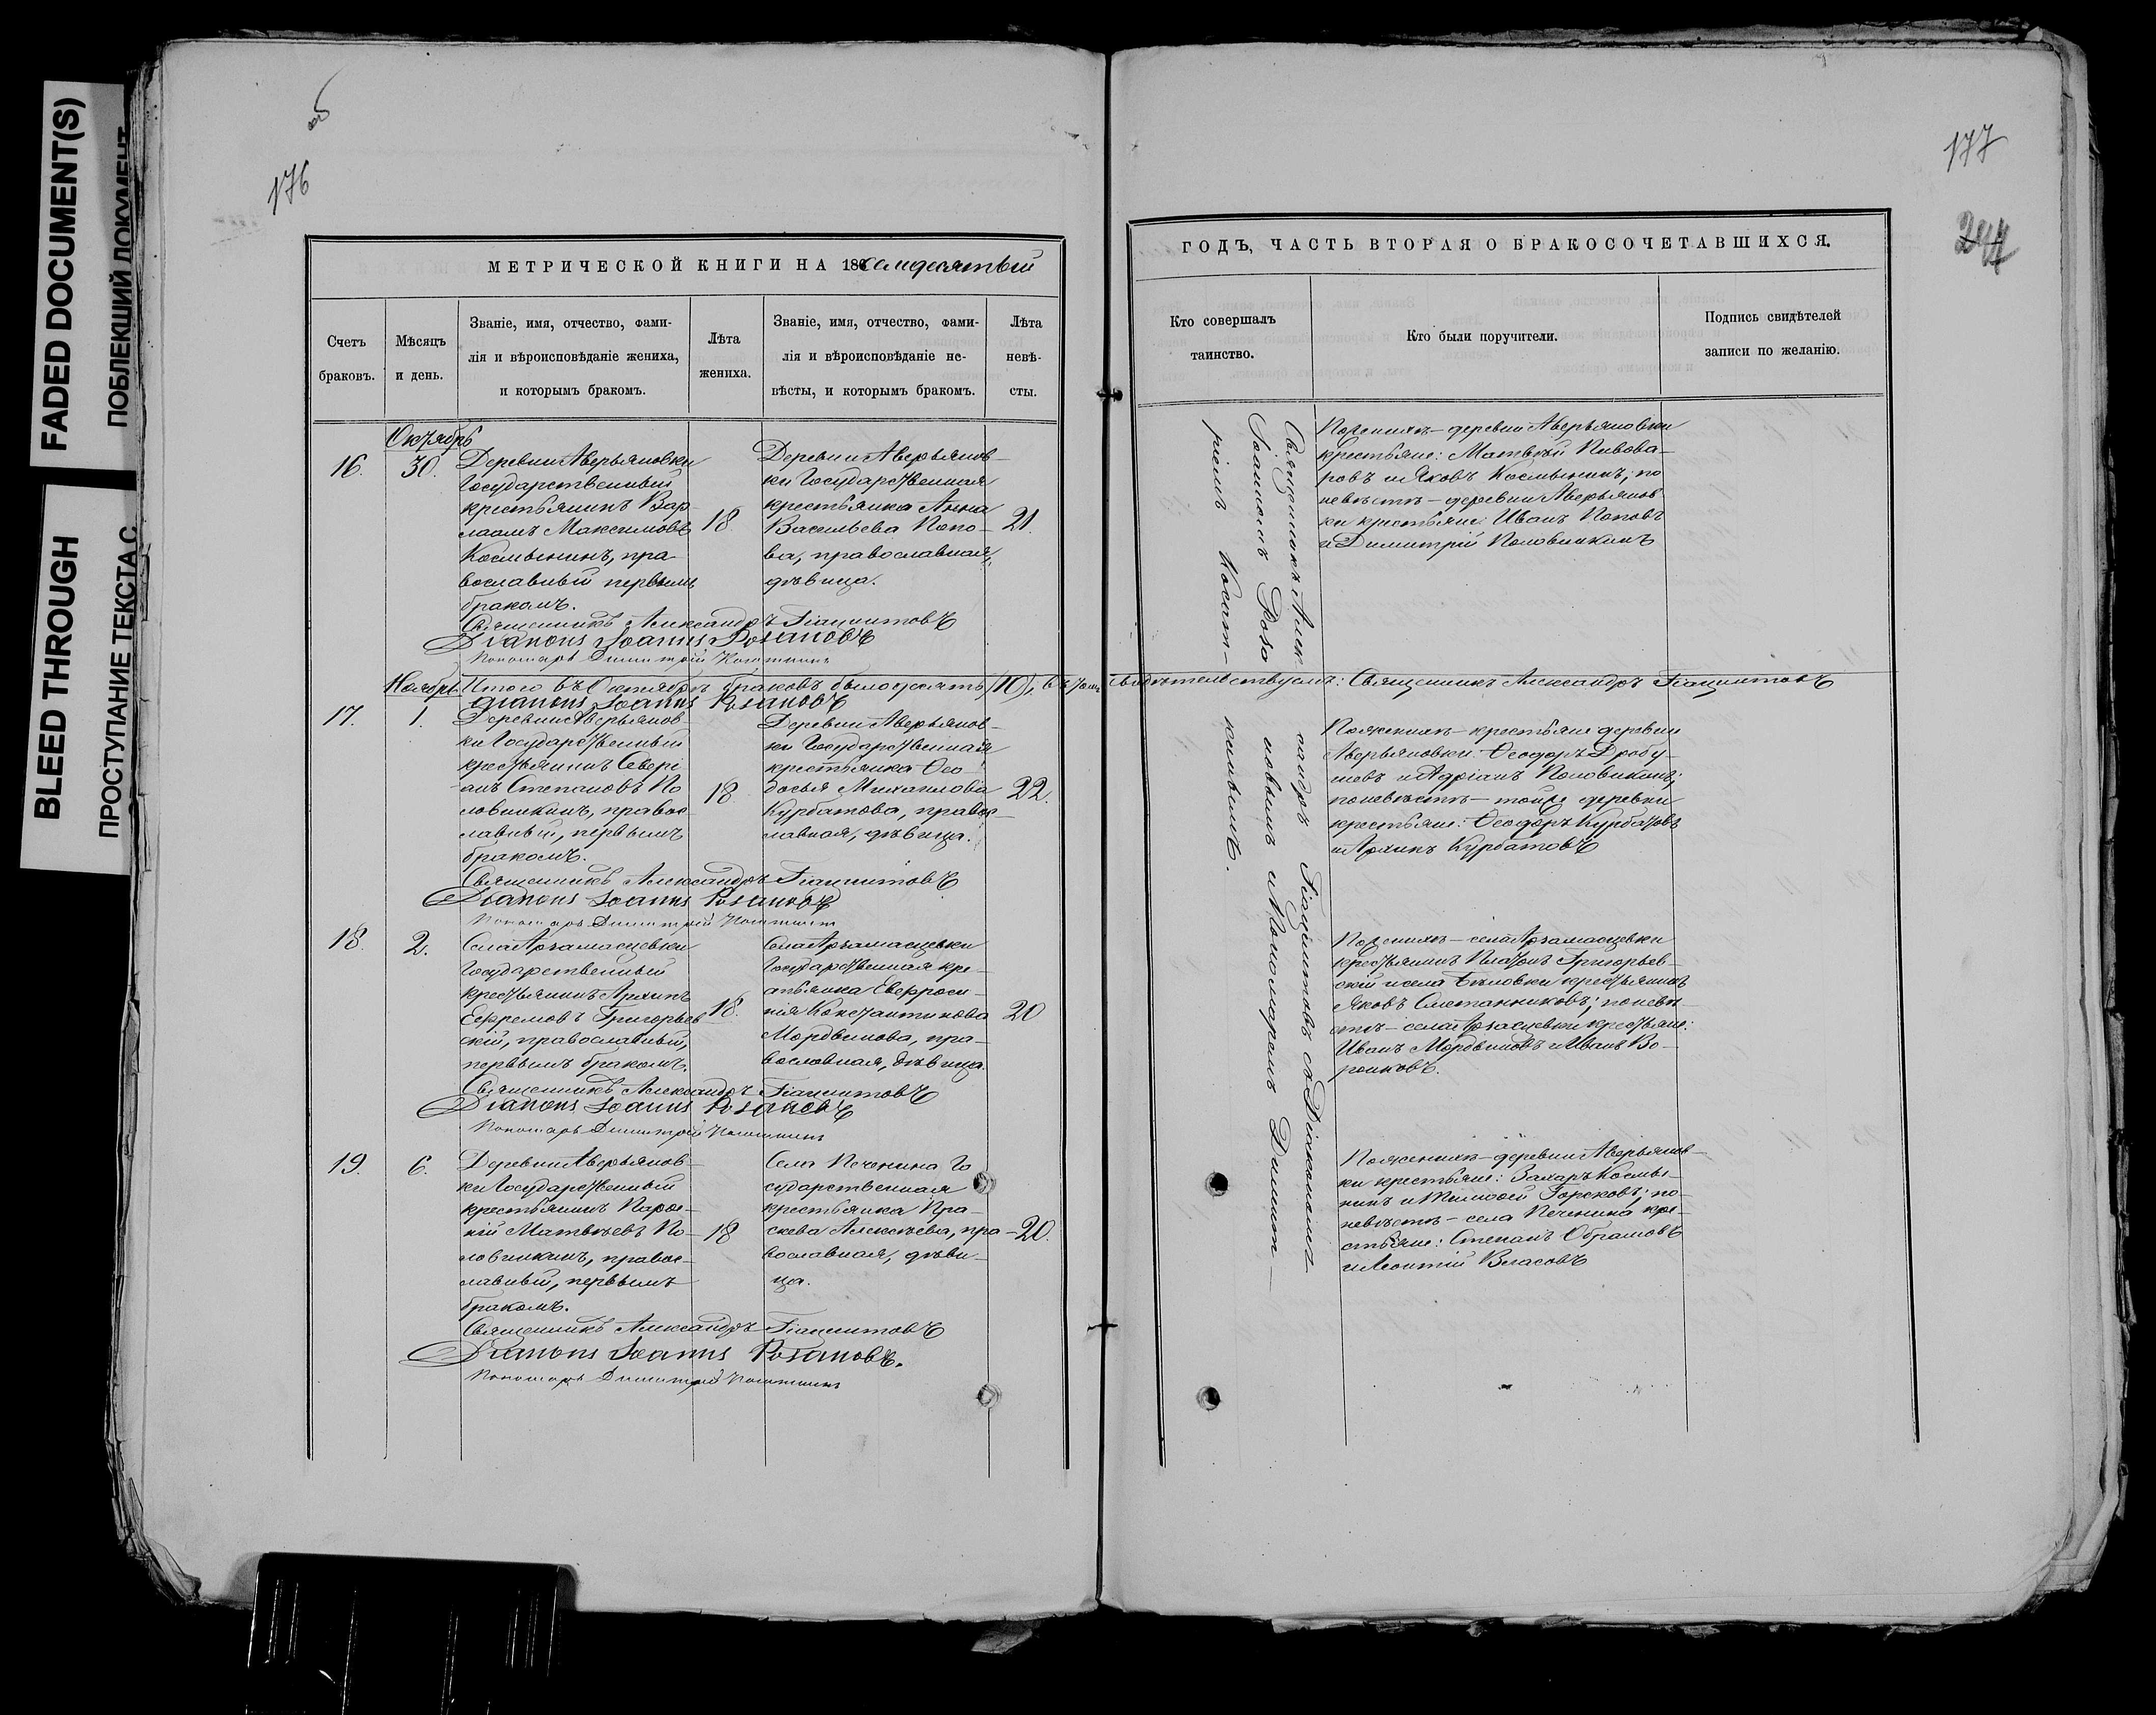 FADED DOCUMENT(S)
ПОБЛЕКШИЙ ДОКУМЕНТ
BLEED THROUGH
ПРОСТУПАНИЕ ТЕКСТА С
176
МЕТРИЧЕСКОЙ КНИГИ НА 186 семидесятый
Счетъ
браковъ.
Мѣсяцъ
и день.
Званіе, имя, отчество, фами-
лія и вѣроисповѣданіе жениха,
и которымъ бракомъ.
Лѣта
жениха.
Званіе, имя, отчество, фами-
лія и вѣроисповѣданіе не-
вѣсты, и которымъ бракомъ.
Лѣта
невѣ-
сты.
Октябрь
16.
30.
Деревни Аверьяновки
Государственный
крестьянинъ Вар
лаамъ Максимовъ
Космынинъ, пра
вославный первымъ
бракомъ.
18
Деревни Аверьянов-
ки Государственная
крестьянка Анна
Васильева Попо-
ва, православная,
дѣвица.
21.
Священникъ Александръ Гіацинтовъ
Діаконъ Іоаннъ Розановъ
Пономарь Димитрій
Ноябрь
Итого въ Октябрѣ браковъ было десять (10), въ чемъ
Діаконъ Іоаннъ Розановъ
17.
1.
Деревни Аверьянов-
ки Государственный
крестьянинъ Севері
анъ Степановъ По
ловинкинъ, правос
лавный, первымъ
бракомъ.
18
Деревни Аверьянов-
ки Государственная
крестьянка Фео-
досья Михаилова
Курбатова, правос-
лавная, дѣвица.
22.
Священникъ Александръ Гіацинтовъ
Діаконъ Іоаннъ Розановъ
Пономарь Димитрій
18.
2.
Села Арзамасцевки
Государственный
крестьянинъ Архипъ
Ефремовъ Григорьев
скій, православный,
первымъ бракомъ.
18.
Села Арзамасцевки
Государственная кре-
стьянка Евфроси-
нія Константинова
Мордвинова, пра-
вославная, дѣвица.
20
Священникъ Александръ Гіацинтовъ
Діаконъ Іоаннъ Розановъ
Пономарь Димитрій
19.
6.
Деревни Аверьянов-
ки Государственный
крестьянинъ Парфе-
ній Матвѣевъ По-
ловинкинъ, правос-
лавный, первымъ
бракомъ.
18
Села Печенина Го
сударственная
крестьянка Пра-
скева Алексѣева, пра-
вославная, дѣви-
ца.
20.
Священникъ Александръ Гіацинтовъ
Діаконъ Іоаннъ Розановъ.
Пономарь Димитрій
177
ГОДЪ, ЧАСТЬ ВТОРАЯ О БРАКОСОЧЕТАВШИХСЯ.
Кто совершалъ
таинство.
Кто были поручители.
Подпись свидѣтелей
записи по желанію.
Священникъ Алек сандръ Гіацинтовъ съ Діакономъ
Іоанномъ Роза новымъ и Пономаремъ Димит-
ріемъ
По женихѣ - деревни Аверьяновки
крестьяне: Матвѣй Пивова-
ровъ и Яковъ Космынинъ; по
невѣстѣ - деревни Аверьянов
ки крестьяне: Иванъ Поповъ
и Димитрій Половинкинъ
свидѣтельствуемъ: Священникъ Александръ Гіацинтовъ
По женихѣ - крестьяне деревни
Аверьяновки Феодоръ Дробу-
шевъ и Адріанъ Половинкинъ;
по невѣстѣ - тойже деревни
крестьяне: Феодоръ Курбатовъ
и Архипъ Курбатовъ
По женихѣ - села Арзамасцевки
крестьянинъ Платонъ Григорьев-
скій и села крестьянинъ
Яковъ Сметанниковъ; по невѣ-
стѣ - села Арзасцевки крестьяне:
Иванъ Мордвиновъ и Иванъ Во-
рониковъ.
По женихѣ - деревни Аверьянов-
ки крестьяне: Захаръ Космы-
нинъ и Тимофей Горсковъ; по
невѣстѣ - села Печенина кре-
стьяне: Степанъ Обрамовъ
и Леонтій Власовъ